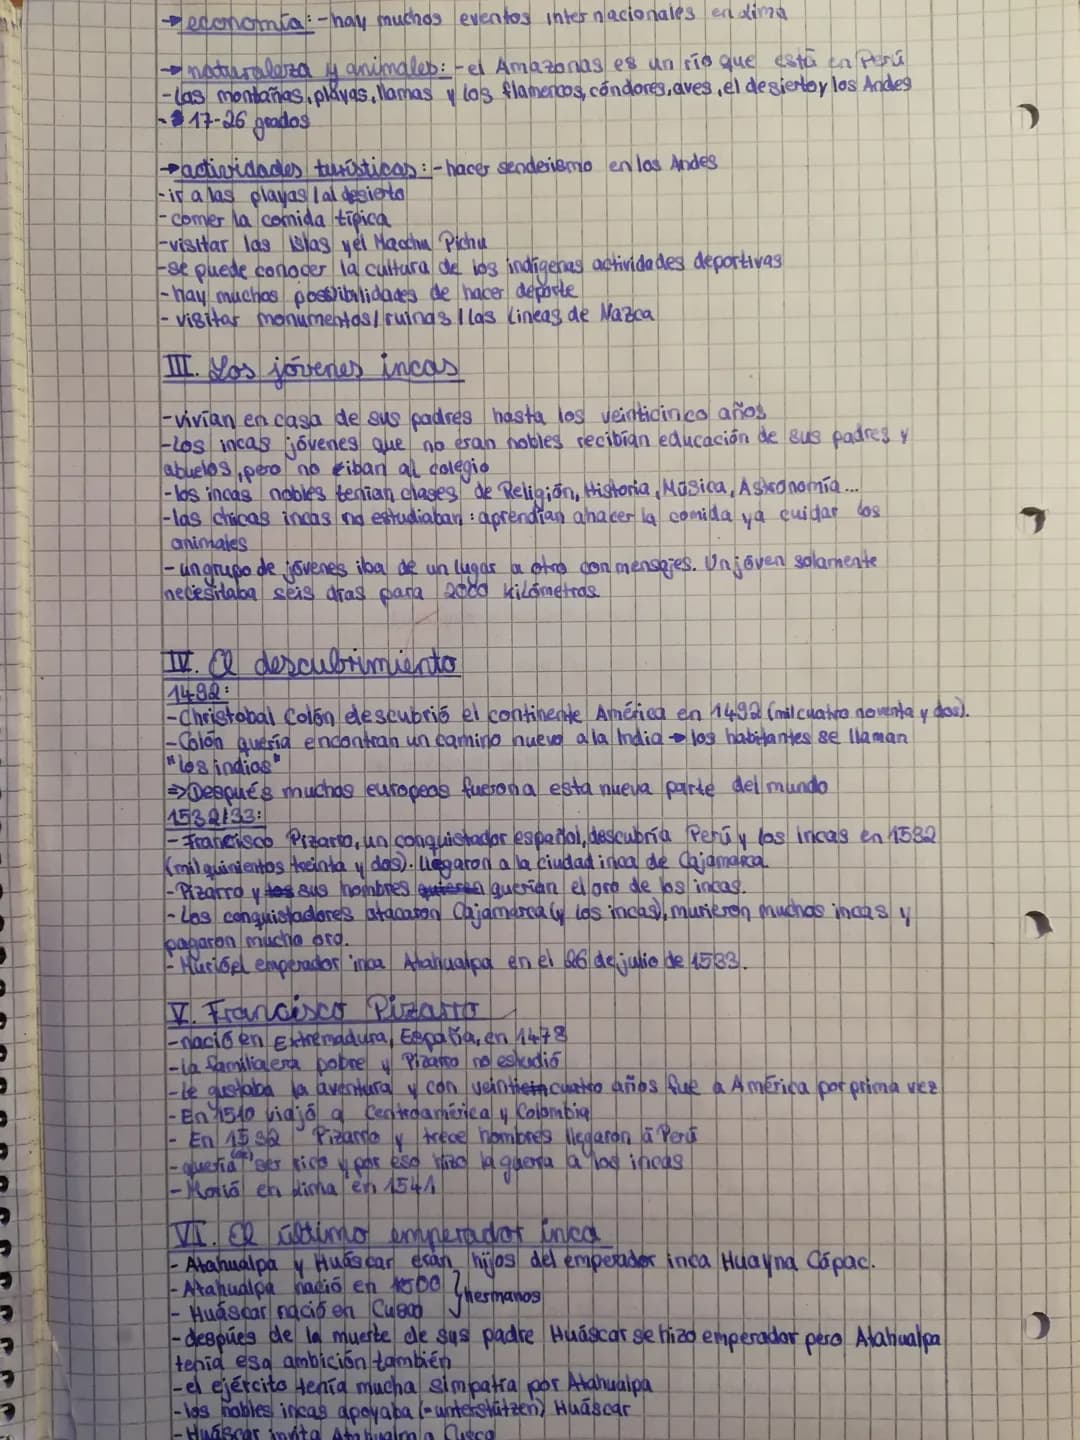 → economía: - hay muchos eventos internacionales en Lima
→ naturaleza y animales: - el Amazonas es un río que está en Perú
- las montañas, playas, llamas y los flamencos, cóndores, aves, el desierto y los Andes
- 17-26 grados
→ actividades turísticas: - hacer senderismo en los Andes
- ir a las playas / al desierto
- comer la comida típica
- visitar las islas y el Macchu Pichu
- se puede conocer la cultura de los indígenas actividades deportivas
- hay muchas possibilidades de hacer deporte
- visitar monumentos / ruinas / las Lineas de Nazca
III. Los jóvenes incas
- vivían en casa de sus padres hasta los veinticinco años
- Los incas jóvenes que no eran nobles recibían educación de sus padres y
abuelos, pero no iban al colegio
- los incas nobles tenían clases de Religión, Historia, Música, Astronomía...
- las chicas incas no estudiaban: aprendían a hacer la comida y a cuidar los
animales
- un grupo de jóvenes iba de un lugar a otro con mensajes. Un jóven solamente
necesitaba seis días para 2000 kilómetros
IV. El descubrimiento
1492:
- Christobal Colón descubrió el continente América en 1492 (mil cuatro noventa y dos).
- Colón quería encontran un camino nuevo a la India → los habitantes se llaman
"los indios"
⇒ Después muchos europeos fueron a esta nueva parte del mundo
1532/33:
- Francisco Pizarro, un conquistador español, descubría Perú y los incas en 1532
(mil quinientos treinta y dos). Llegaron a la ciudad inca de Cajamarca.
- Pizarro y los sus hombres quieren querían el oro de los incas.
- Los conquistadores atacaron Cajamarca (y los incas), murieron muchos incas y
pagaron mucho oro.
- Murió el emperador inca Atahualpa en el 26 de julio de 1533.
V. Francisco Pizarro
- nació en Extremadura, España, en 1478
- La familia era pobre y Pizarro no estudió
- Le gustaba la aventura y con veinticuatro años fue a América por prima vez
- En 1510 viajó a Centroamérica y Colombia
- En 1532 Pizarro y trece hombres llegaron a Perú
- quería ser rico y por eso hizo la guerra a los incas
- Morió en Lima en 1541
VI. El último emperador inca
- Atahualpa y Huáscar eran hijos del emperador inca Huayna Cápac.
- Atahualpa nació en 1500
- Huáscar nació en Cusco } hermanos
- despúes de la muerte de sus padre Huáscar se hizo emperador pero Atahualpa
tenía esa ambición también
- el ejército tenía mucha simpatía por Atahualpa
- los nobles incas apoyaba (= unterstützen) Huáscar
- Huáscar invita Atahualpa Cusco